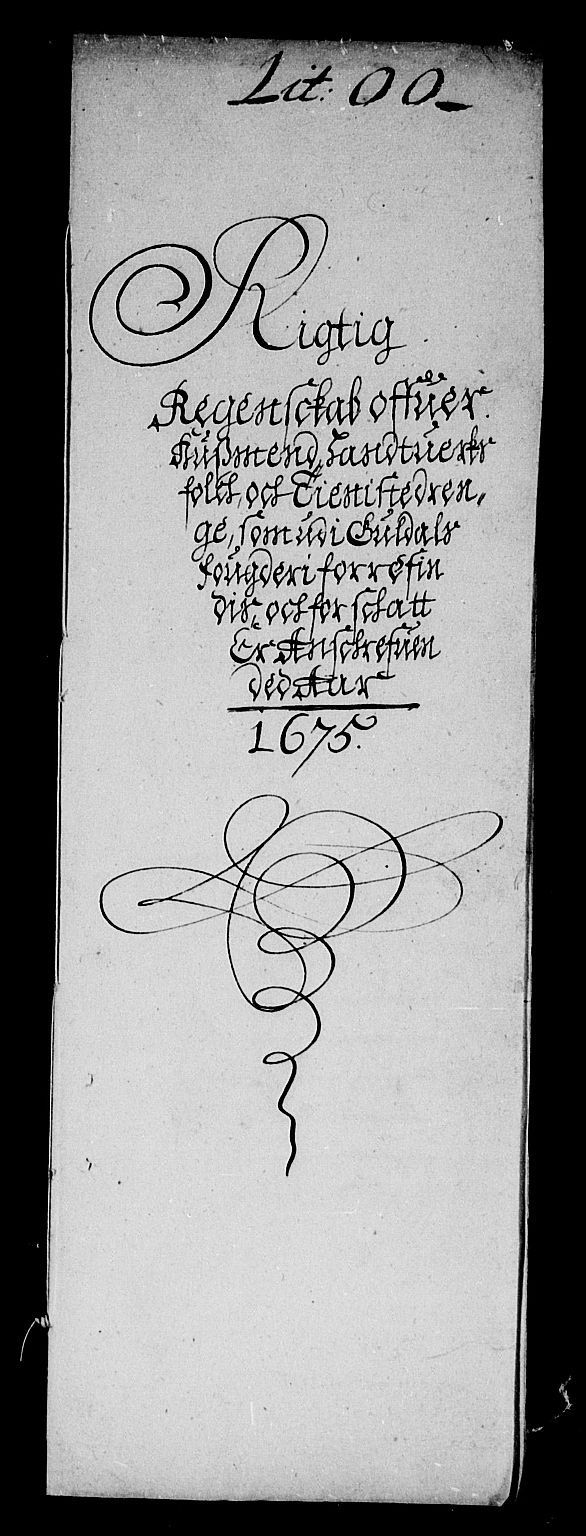 Lit: OO
Rigtig
Regenschab offuer
Hussmend, Handtuerks
folch, och Tienistedren,
ge, som udi Guldals
fougderi forrefin
dis, och for schatt
Er Anschrefuen
ded Aar
1675.